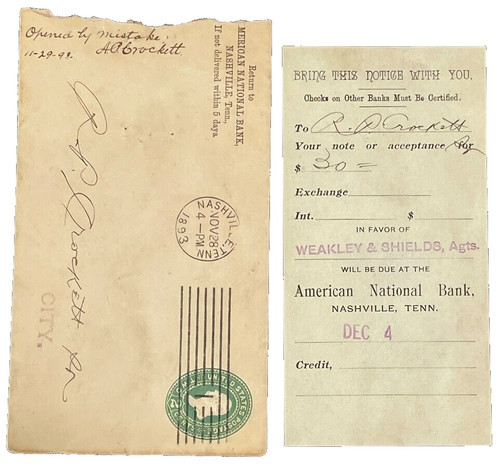 Opened by mistake.
11-29-93. A.P. Crockett.
Return to
AMERICAN NATIONAL BANK,
NASHVILLE, Tenn.,
If not delivered within 5 days
NASHVILLE, TENN
NOV 28
4-PM
1893
R. P. Crockett
CITY.
UNITED STATES POSTAGE
BRING THIS NOTICE WITH YOU.
Checks on Other Banks Must Be Certified.
To R. P. Crockett
Your note or acceptance for
$ 30=
Exchange
Int. $
IN FAVOR OF
WEAKLEY & SHIELDS, Agts.
WILL BE DUE AT THE
American National Bank,
NASHVILLE, TENN.
DEC 4
Credit,